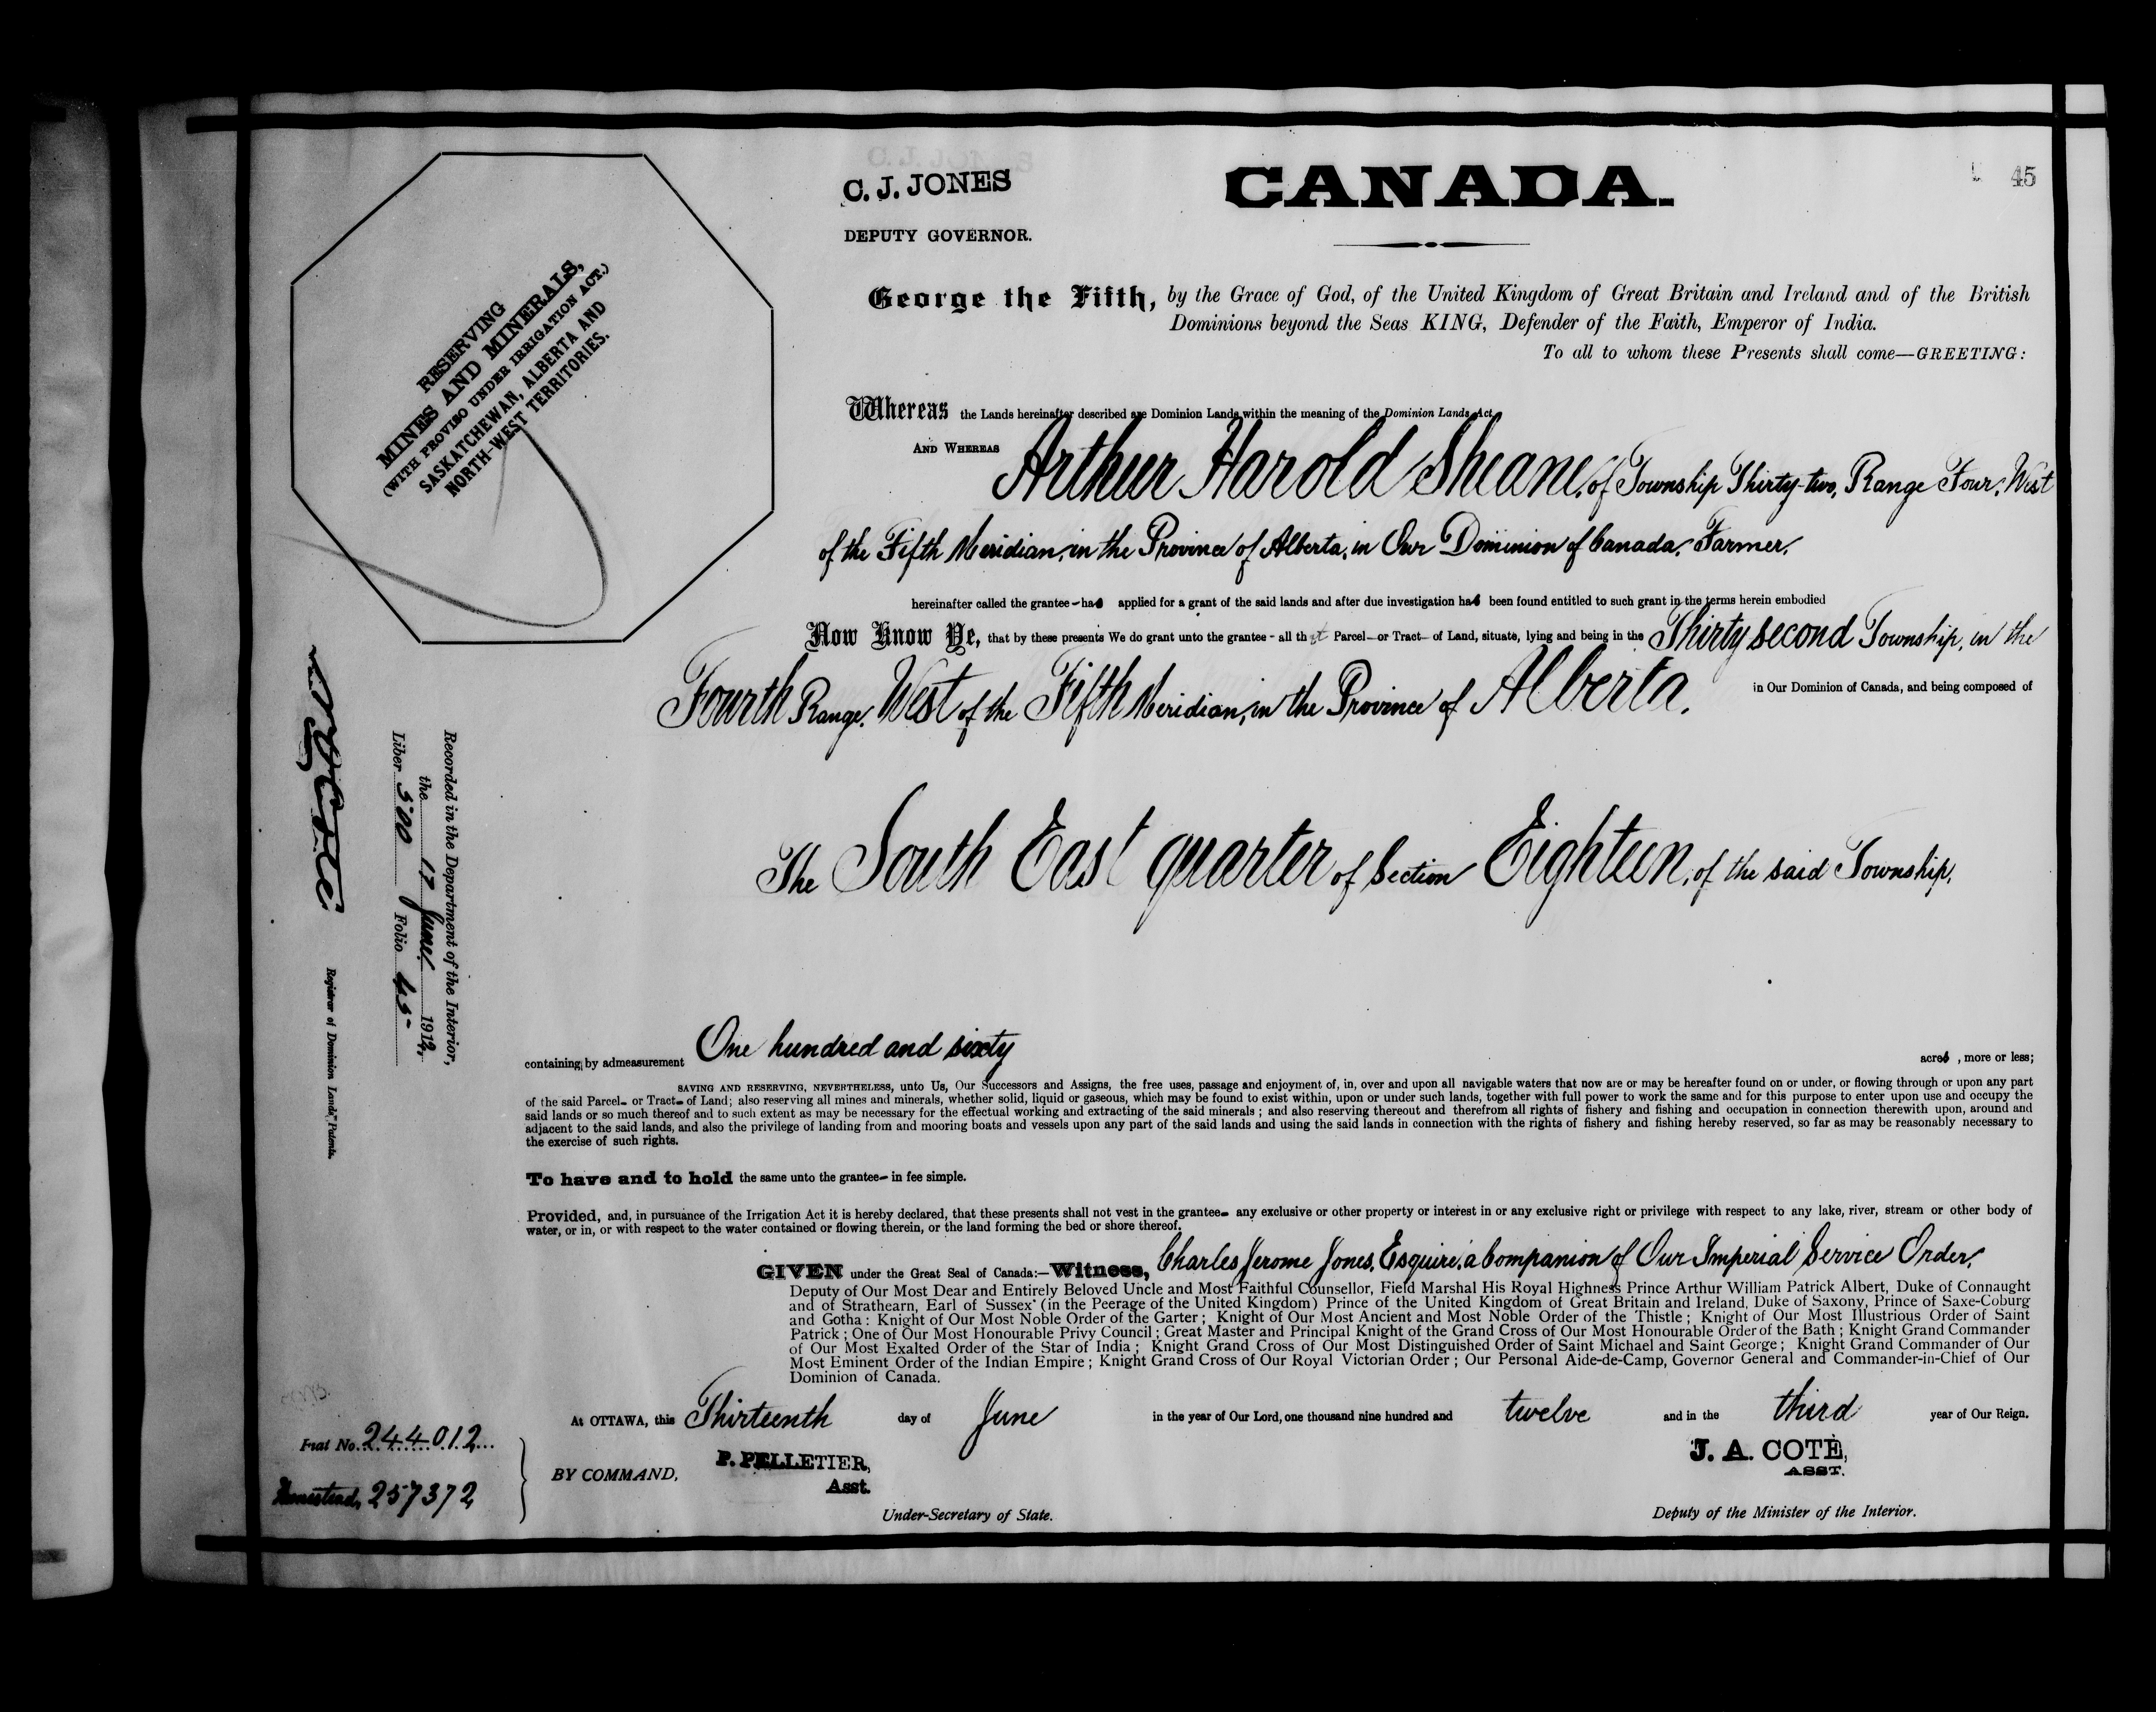 C. J. JONES
DEPUTY GOVERNOR.
CANADA.
45
RESERVING
MINES AND MINERALS,
(WITH PROVISO UNDER IRRIGATION ACT.)
SASKATCHEWAN, ALBERTA AND
NORTH-WEST TERRITORIES.
George the Fifth, by the Grace of God, of the United Kingdom of Great Britain and Ireland and of the British
Dominions beyond the Seas KING, Defender of the Faith, Emperor of India.
To all to whom these Presents shall come—GREETING:
Whereas the Lands hereinafter described are Dominion Lands within the meaning of the Dominion Lands Act,
AND WHEREAS Arthur Harold Sheane, of Township Thirty-two, Range Four, West
of the Fifth Meridian, in the Province of Alberta, in Our Dominion of Canada, Farmer,
hereinafter called the grantee - has applied for a grant of the said lands and after due investigation has been found entitled to such grant in the terms herein embodied
Now Know Ye, that by these presents We do grant unto the grantee - all that Parcel - or Tract - of Land, situate, lying and being in the Thirty second Township, in the
Fourth Range, West of the Fifth Meridian, in the Province of Alberta, in Our Dominion of Canada, and being composed of
The South East quarter of Section Eighteen, of the said Township,
Recorded in the Department of the Interior,
the 17 June 1912,
Liber 500 Folio 45
Registrar of Dominion Lands Patents.
containing by admeasurement One hundred and sixty acres, more or less;
SAVING AND RESERVING, NEVERTHELESS, unto Us, Our Successors and Assigns, the free uses, passage and enjoyment of, in, over and upon all navigable waters that now are or may be hereafter found on or under, or flowing through or upon any part
of the said Parcel- or Tract- of Land; also reserving all mines and minerals, whether solid, liquid or gaseous, which may be found to exist within, upon or under such lands, together with full power to work the same and for this purpose to enter upon use and occupy the
said lands or so much thereof and to such extent as may be necessary for the effectual working and extracting of the said minerals ; and also reserving thereout and therefrom all rights of fishery and fishing and occupation in connection therewith upon, around and
adjacent to the said lands, and also the privilege of landing from and mooring boats and vessels upon any part of the said lands and using the said lands in connection with the rights of fishery and fishing hereby reserved, so far as may be reasonably necessary to
the exercise of such rights.
To have and to hold the same unto the grantee- in fee simple.
Provided, and, in pursuance of the Irrigation Act it is hereby declared, that these presents shall not vest in the grantee- any exclusive or other property or interest in or any exclusive right or privilege with respect to any lake, river, stream or other body of
water, or in, or with respect to the water contained or flowing therein, or the land forming the bed or shore thereof.
GIVEN under the Great Seal of Canada:—Witness, Charles Jerome Jones, Esquire, a Companion of Our Imperial Service Order,
Deputy of Our Most Dear and Entirely Beloved Uncle and Most Faithful Counsellor, Field Marshal His Royal Highness Prince Arthur William Patrick Albert, Duke of Connaught
and of Strathearn, Earl of Sussex (in the Peerage of the United Kingdom) Prince of the United Kingdom of Great Britain and Ireland, Duke of Saxony, Prince of Saxe-Coburg
and Gotha: Knight of Our Most Noble Order of the Garter ; Knight of Our Most Ancient and Most Noble Order of the Thistle ; Knight of Our Most Illustrious Order of Saint
Patrick ; One of Our Most Honourable Privy Council ; Great Master and Principal Knight of the Grand Cross of Our Most Honourable Order of the Bath ; Knight Grand Commander
of Our Most Exalted Order of the Star of India ; Knight Grand Cross of Our Most Distinguished Order of Saint Michael and Saint George ; Knight Grand Commander of Our
Most Eminent Order of the Indian Empire ; Knight Grand Cross of Our Royal Victorian Order ; Our Personal Aide-de-Camp, Governor General and Commander-in-Chief of Our
Dominion of Canada.
At OTTAWA, this Thirteenth day of June in the year of Our Lord, one thousand nine hundred and twelve and in the third year of Our Reign.
No. 244012
Homestead, 257372
BY COMMAND,
P. PELLETIER,
Asst.
Under-Secretary of State.
J. A. COTÉ,
ASST.
Deputy of the Minister of the Interior.